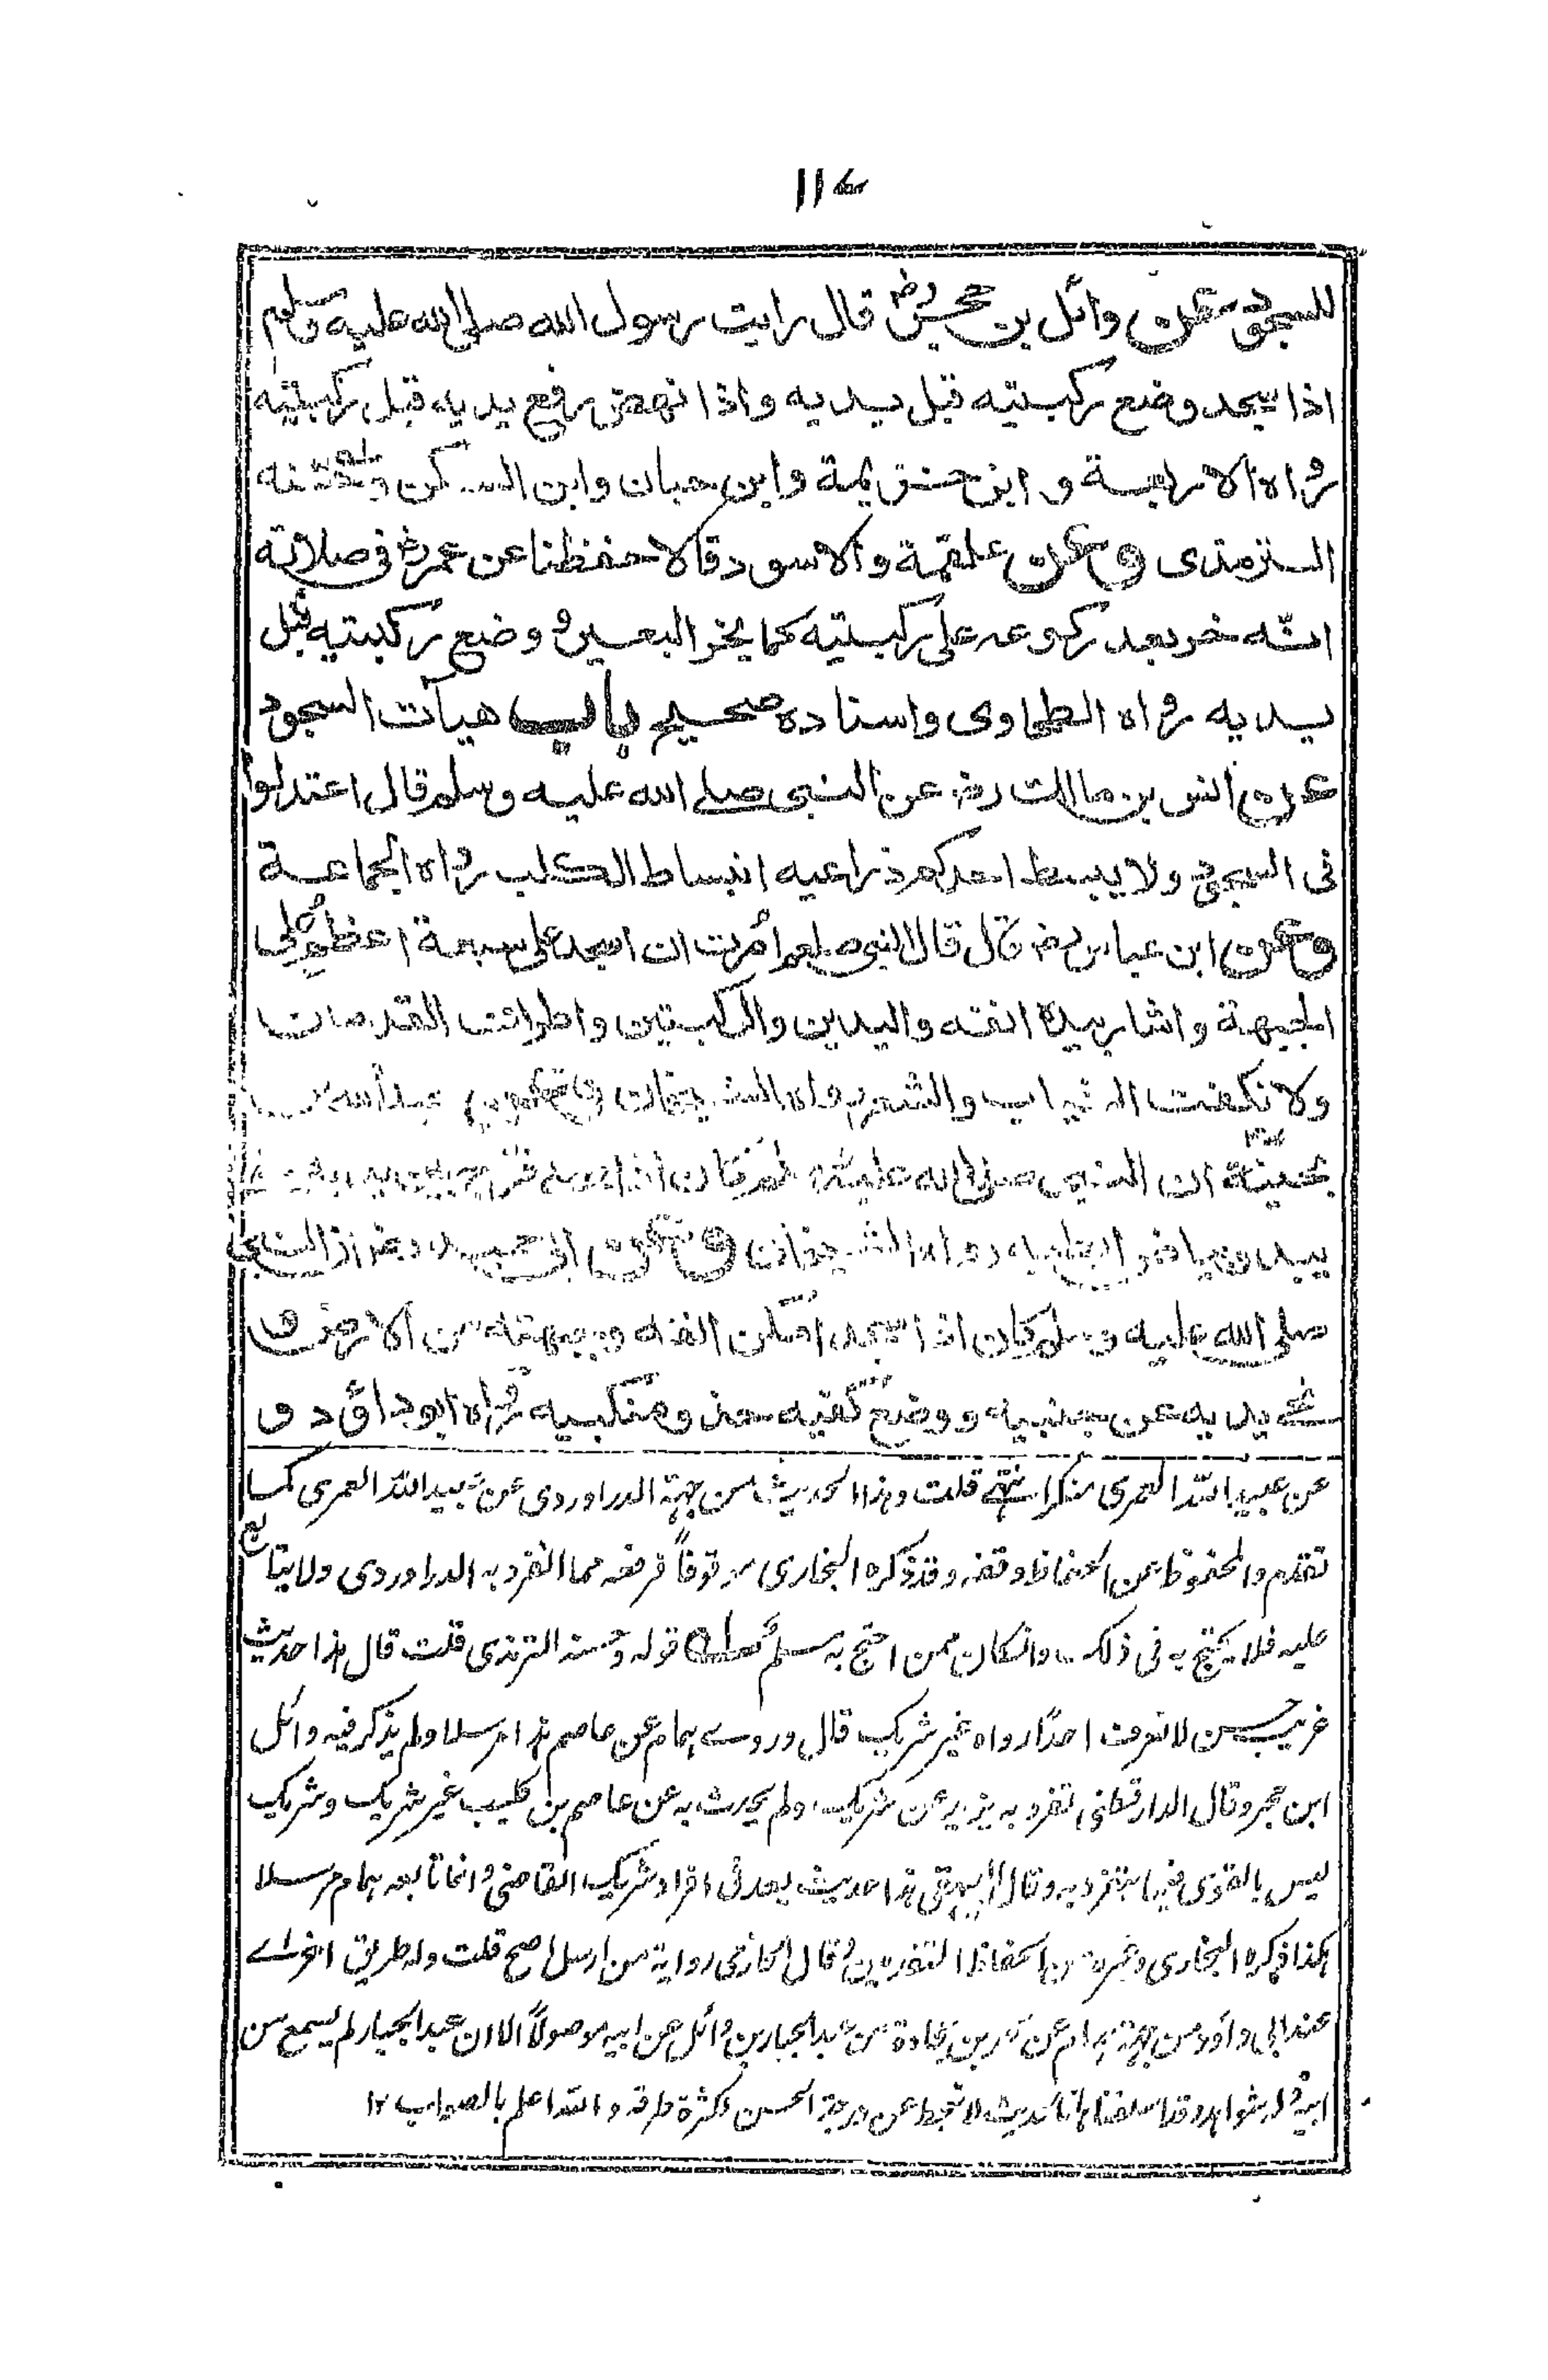 ۱۱۷
للسجود وعن وائل بن حجر رض قال رايت رسول الله صلى الله عليه وسلم
اذا سجد وضع ركبتيه قبل يديه واذا نهض رفع يديه قبل ركبتيه
رواه الاربعة و ابن خزيمة وابن حبان وابن السكن وحسنه
الترمذى وعن علقمة والاسود قالا حفظنا عن عمر رض فى صلاته
انه خر بعد ركوعه على ركبتيه كما يخر البعير و وضع ركبتيه قبل
يديه رواه الطحاوى واسناده صحيح باب هيآت السجود
عن انس بن مالك رض عن النبى صلے الله عليه وسلم قال اعتدلوا
فى السجود ولا يبسط احدكم ذراعيه انبساط الكلب رواه الجماعة
وعن ابن عباس رض قال قال النبى صلعم امرت ان اسجد على سبعة اعظم على
الجبهة واشار بيده الى انفه واليدين والركبتين واطراف القدمين
ولا نكفت الثياب والشعر رواه الشيخان وعن عبد الله بن
بحينة ان النبى صلى الله عليه وسلم كان اذا صلى فرج بين يديه حتى
يبدو بياض ابطيه رواه الشيخان وعن ابى حميد رض ان النبى
صلى الله عليه وسلم كان اذا سجد امكن انفه وجبهته من الارض و
نحى يديه عن جنبيه و وضع كفيه حذو منكبيه رواه ابو داؤد و
عن عبيد الله العمرى منكرا انتهے قلت وهذا الحديث من جهة الدراوردى عن عبيد الله العمرى كما
تقدم والمحفوظ عن الحفاظ وقفه وقد ذكره البخارى موقوفاً فرفعه مما انفرد به الدراوردى ولا يتابع
عليه فلا يحتج به فى ذلك وانكان ممن احتج به مسلم قوله وحسنه الترمذى قلت قال هذا حديث
غريب حسن لا نعرف احدًا رواه غير شريك قال وروے همام عن عاصم هذا مرسلا ولم يذكر فيه وائل
ابن حجر وقال الدارقطنى تفرد به يزيد عن شريك ولم يحدث به عن عاصم بن كليب غير شريك وشريك
ليس بالقوى فيما يتفرد به وقال البيهقى هذا حديث يعد فى افراد شريك القاضى وانما تابعه همام مرسلا
هكذا ذكره البخارى وغيره من الحفاظ المتقدمين وقال الحازمى رواية من ارسل اصح قلت وله طريق اخراے
عند ابى داود من جهة همام عن محمد بن جحادة عن عبد الجبار بن وائل عن ابيه موصولاً الا ان عبد الجبار لم يسمع من
ابيه وله شواهد وقد اسلفناها فالحديث لا تنحط عن درجة الحسن لكثرة طرقه والله اعلم بالصواب ۱۲